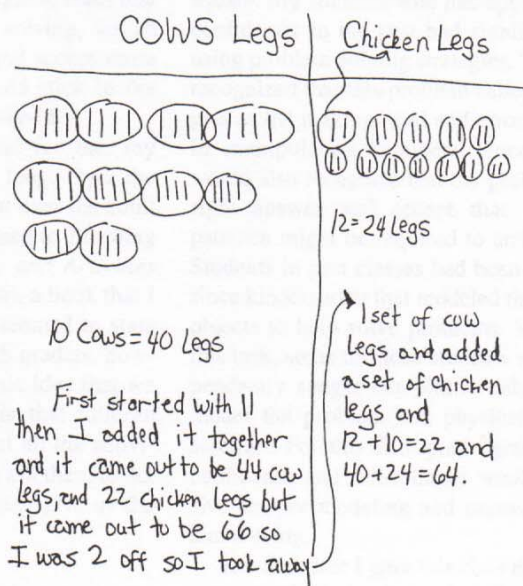 COWS Legs
Chicken Legs
12=24 Legs
10 Cows = 40 Legs
First started with 11
then I added it together
and it came out to be 44 cow
legs, and 22 chicken legs but
it came out to be 66 so
I was 2 off so I took away
1 set of cow
legs and added
a set of chicken
legs and
12+10=22 and
40+24=64.